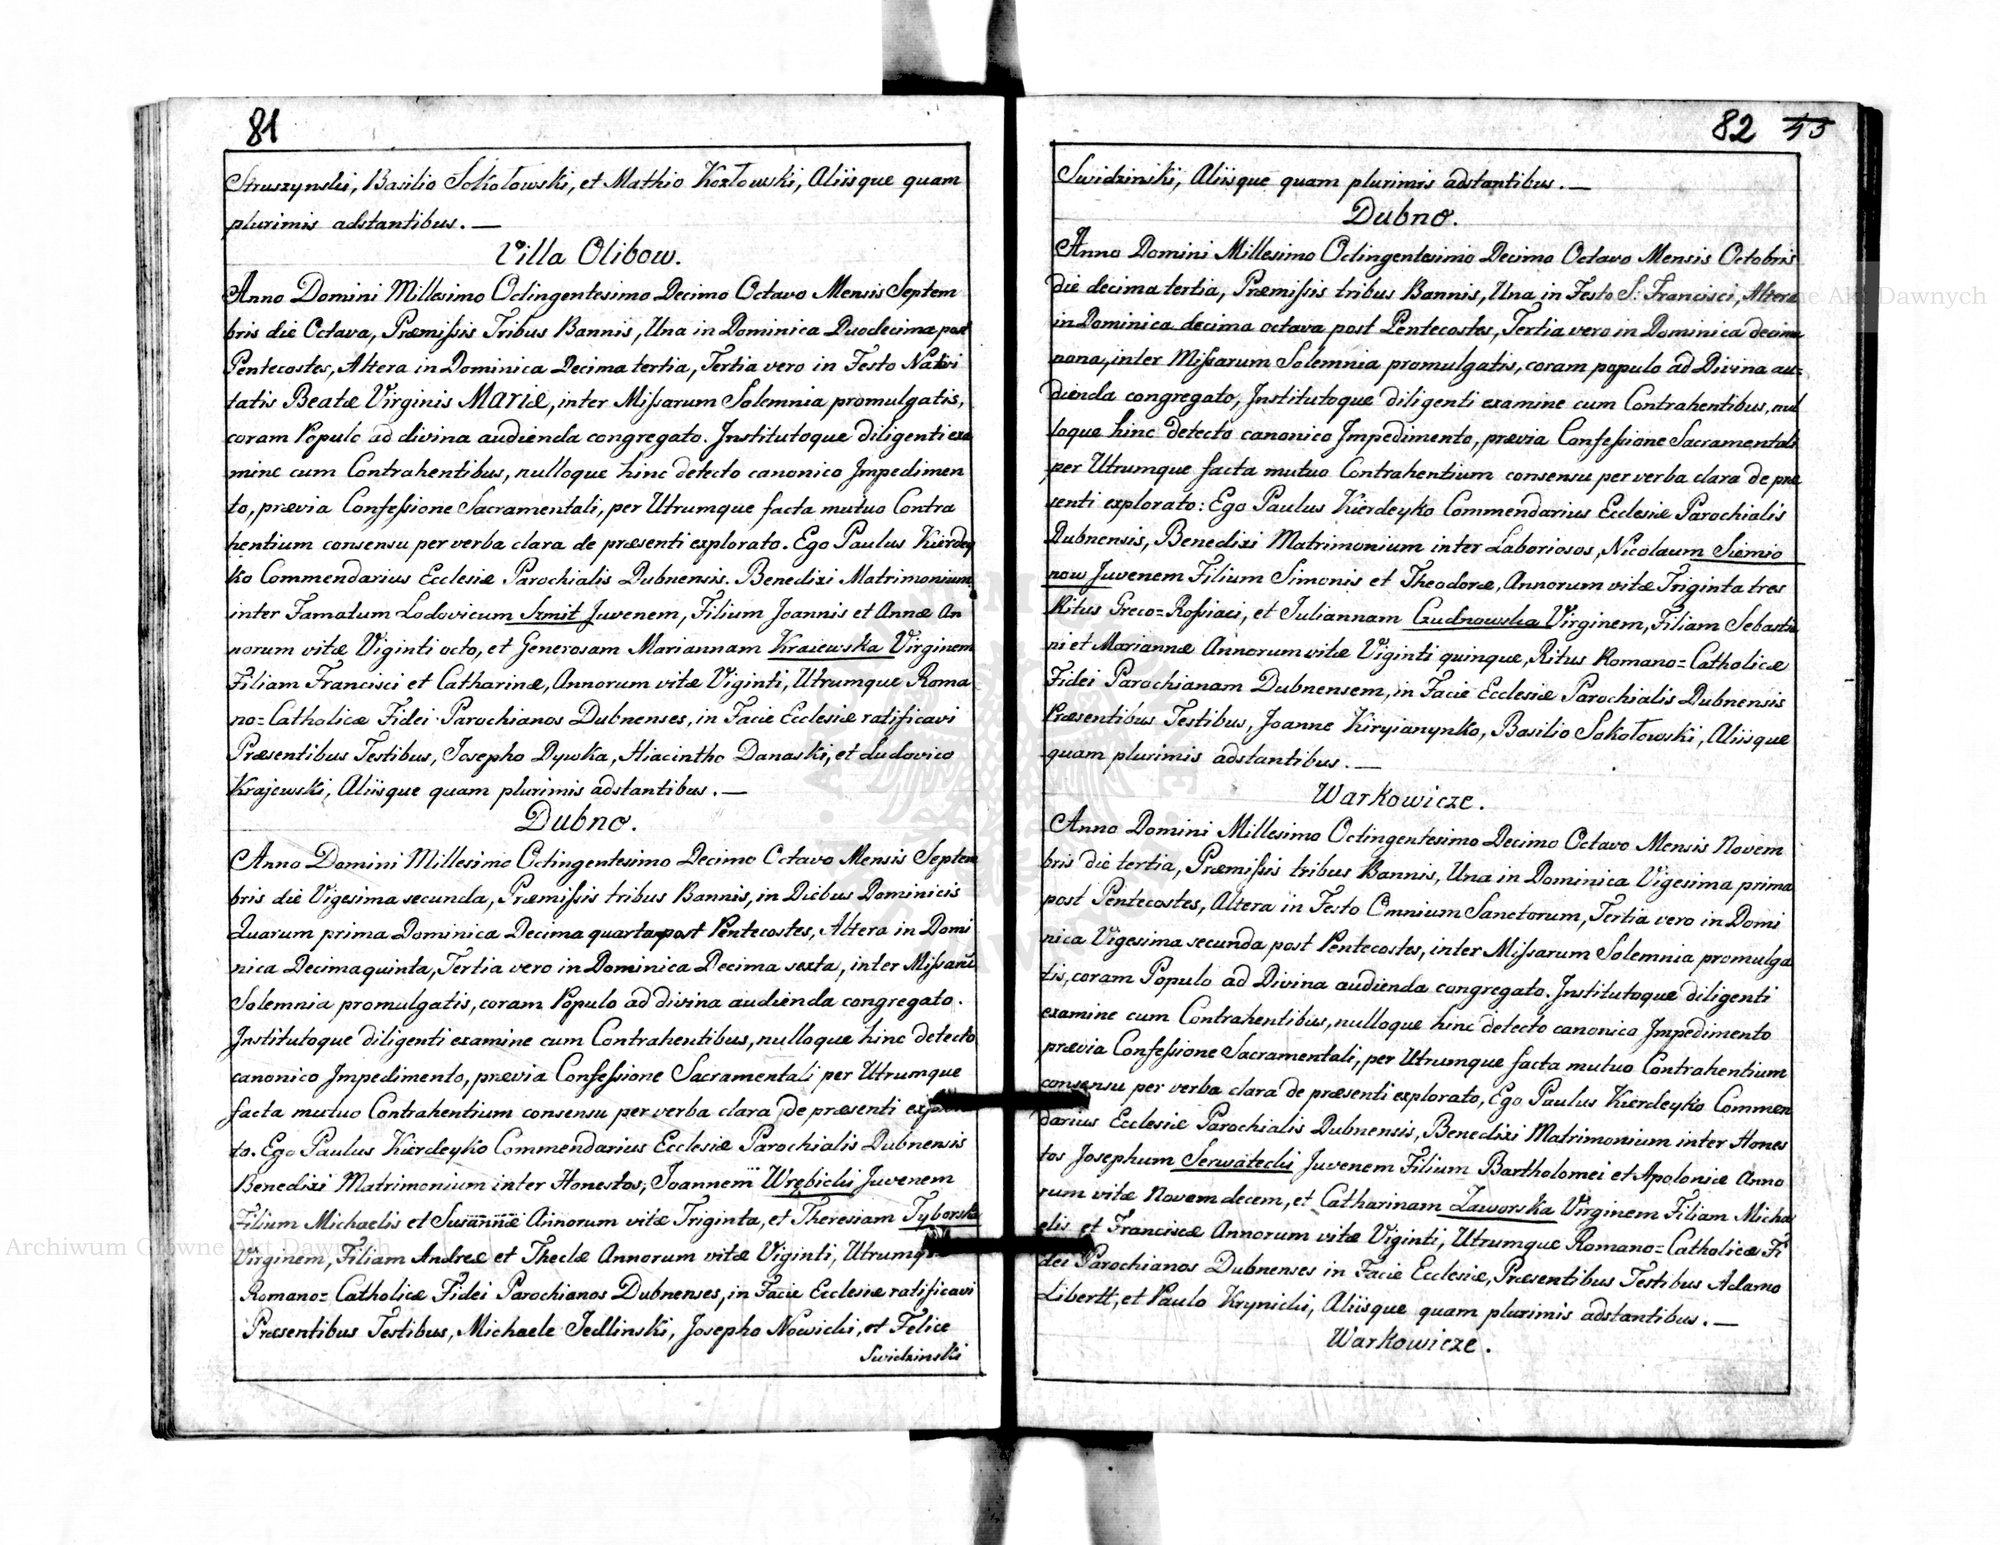 81
Struszynski, Basilio Sokołowski, et Mathio Kozłowski, Aliisque quam
plurimis adstantibus. —
Villa Olibow.
Anno Domini Millesimo Octingentesimo Decimo Octavo Mensis Septem
bris die Octava, Præmissis Tribus Bannis, Una in Dominica Duodecima post
Pentecostes, Altera in Dominica Decima tertia, Tertia vero in Festo Nativi
tatis Beatæ Virginis Mariæ, inter Missarum Solemnia promulgatis,
coram Populo ad divina audienda congregato. Institutoque diligenti exa
mine cum Contrahentibus, nulloque hinc detecto canonico Impedimen
to, prævia Confessione Sacramentali, per Utrumque facta mutuo Contra
hentium consensu per verba clara de præsenti explorato. Ego Paulus Kierdey
ko Commendarius Ecclesiæ Parochialis Dubnensis. Benedixi Matrimonium
inter Famatum Lodovicum Szmit Juvenem, Filium Joannis et Annæ An
norum vitæ Viginti octo, et Generosam Mariannam Kraiewska Virginem
Filiam Francisci et Catharinæ, Annorum vitæ Viginti, Utrumque Roma
no=Catholicæ Fidei Parochianos Dubnenses, in Facie Ecclesiæ ratificavi
Præsentibus Testibus, Josepho Dywka, Hiacintho Danaski, et Ludovico
Krajewski, Aliisque quam plurimis adstantibus. —
Dubno.
Anno Domini Millesimo Octingentesimo Decimo Octavo Mensis Septem
bris die Vigesima secunda, Præmissis tribus Bannis, in Diebus Dominicis
Quarum prima Dominica Decima quarta post Pentecostes, Altera in Domi
nica Decima quinta, Tertia vero in Dominica Decima sexta, inter Missarū
Solemnia promulgatis, coram Populo ad divina audienda congregato.
Institutoque diligenti examine cum Contrahentibus, nulloque hinc detecto
canonico Impedimento, prævia Confessione Sacramentali per Utrumque
facta mutuo Contrahentium consensu per verba clara de præsenti explora
to. Ego Paulus Kierdeyko Commendarius Ecclesiæ Parochialis Dubnensis
Benedixi Matrimonium inter Honestos, Joannem Wrębicki Juvenem
Filium Michaelis et Susannæ Annorum vitæ Triginta, et Theresiam Tyborska
Virginem, Filiam Andreæ et Theclæ Annorum vitæ Viginti, Utrumque
Romano=Catholicæ Fidei Parochianos Dubnenses, in Facie Ecclesiæ ratificavi
Præsentibus Testibus, Michaele Jedlinski, Josepho Nowicki, et Felice
Swidzinski
82 45
Swidzinski, Aliisque quam plurimis adstantibus. —
Dubno.
Anno Domini Millesimo Octingentesimo Decimo Octavo Mensis Octobris
die decima tertia, Præmissis tribus Bannis, Una in Festo S: Francisci, Altera
in Dominica decima octava post Pentecostes, Tertia vero in Dominica decima
nona, inter Missarum Solemnia promulgatis, coram populo ad Divina au=
dienda congregato, Institutoque diligenti examine cum Contrahentibus, nul
loque hinc detecto canonico Impedimento, prævia Confessione Sacramentali
per Utrumque facta mutuo Contrahentium consensu per verba clara de præ
senti explorato: Ego Paulus Kierdeyko Commendarius Ecclesiæ Parochialis
Dubnensis, Benedixi Matrimonium inter Laboriosos, Nicolaum Siemio
now Juvenem Filium Simonis et Theodoræ, Annorum vitæ Triginta tres
Ritus Greco=Rossiaci, et Juliannam Czudnowska Virginem, Filiam Sebastia
ni et Mariannæ Annorum vitæ Viginti quinque, Ritus Romano=Catholicæ
Fidei Parochianam Dubnensem, in Facie Ecclesiæ Parochialis Dubnensis
Præsentibus Testibus, Joanne Kiryianynko, Basilio Sokołowski, Aliisque
quam plurimis adstantibus. —
Warkowicze.
Anno Domini Millesimo Octingentesimo Decimo Octavo Mensis Novem
bris die tertia, Præmissis tribus Bannis, Una in Dominica Vigesima prima
post Pentecostes, Altera in Festo Omnium Sanctorum, Tertia vero in Domi
nica Vigesima secunda post Pentecostes, inter Missarum Solemnia promulga
tis, coram Populo ad Divina audienda congregato. Institutoque diligenti
examine cum Contrahentibus, nulloque hinc detecto canonico Impedimento
prævia Confessione Sacramentali, per Utrumque facta mutuo Contrahentium
consensu per verba clara de præsenti explorato, Ego Paulus Kierdeyko Commen
darius Ecclesiæ Parochialis Dubnensis, Benedixi Matrimonium inter Hones
tos Josephum Serwatecki Juvenem Filium Bartholomei et Apoloniæ Anno
rum vitæ Novem decem, et Catharinam Zaworska Virginem Filiam Micha
elis et Franciscæ Annorum vitæ Viginti, Utrumque Romano=Catholicæ Fi
dei Parochianos Dubnenses in Facie Ecclesiæ, Præsentibus Testibus Adamo
Libertt, et Paulo Krynicki, Aliisque quam plurimis adstantibus. —
Warkowicze.
Archiwum Główne Akt Dawnych